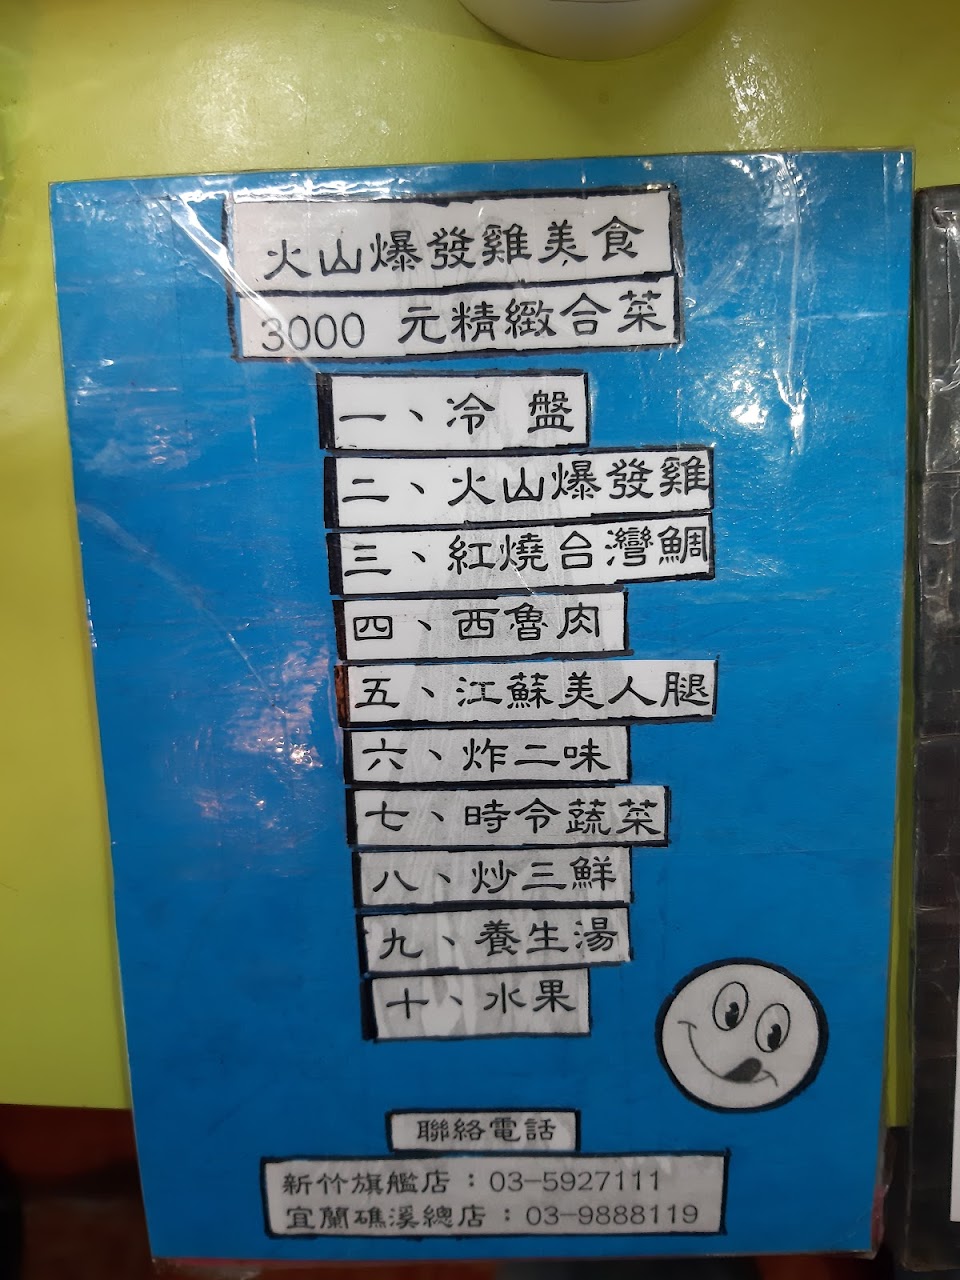 火山爆發雞美食
3000 元精緻合菜
一、冷 盤
二、火山爆發雞
三、紅燒台灣鯛
四、西魯肉
五、江蘇美人腿
六、炸二味
七、時令蔬菜
八、炒三鮮
九、養生湯
十、水果
聯絡電話
新竹旗艦店：03-5927111
宜蘭礁溪總店：03-9888119